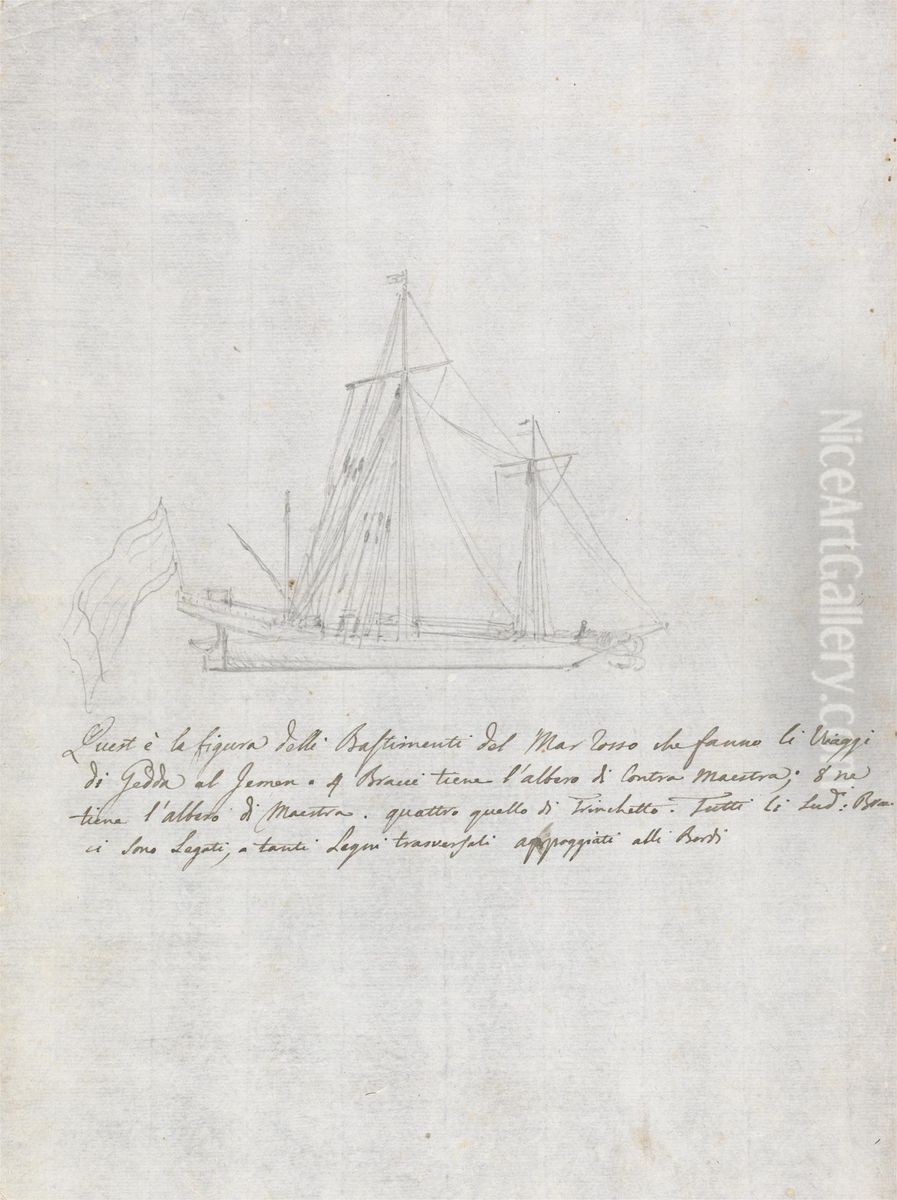 Quest è la figura delli Bastimenti del Mar Rosso che fanno li Viaggi
di Gedda al Jemen. 4 Bracci tiene l'albero di Contra Maestra; 8 ne
tiene l'albero di Maestra. quattro quello di Trinchetto. Tutti li Sud: Brac
ci sono Legati, a tanti Legni trasversali appoggiati alli Bordi
NiceArtGallery.com